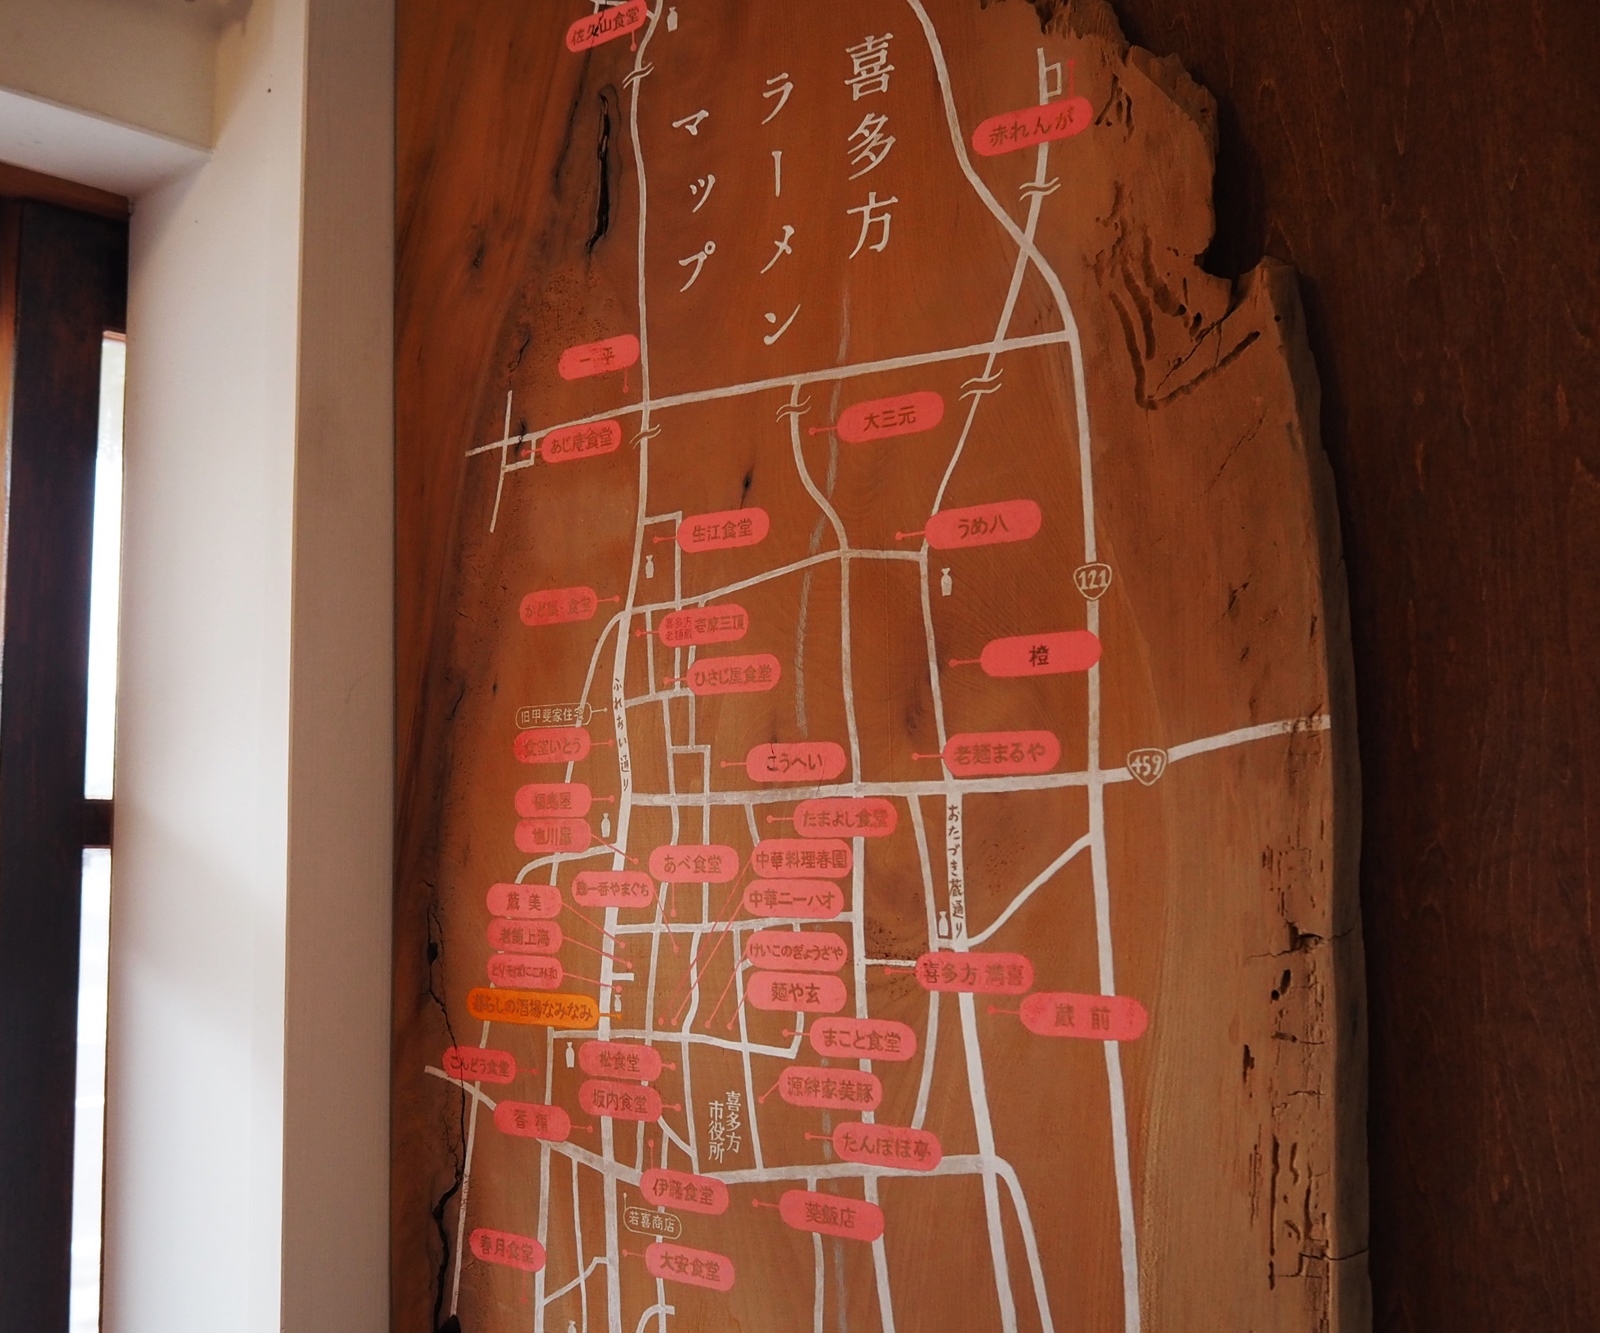 喜多方
ラーメン
マップ
佐久山食堂
赤れんが
一平
大三元
あじ庵食堂
生江食堂
うめ八
121
食堂
喜多方
老麺
ひさじ屋食堂
橙
ふれあい通り
旧甲斐家住宅
食堂いとう
こうへい
老麺まるや
459
おたづき蔵通り
福島屋
たまよし食堂
地川屋
あべ食堂
中華料理春園
麺一番やまぐち
中華ニーハオ
蔵美
老舗上海
けいこのぎょうざや
喜多方満喜
麺や玄
暮らしの酒場なみなみ
蔵前
まこと食堂
こんどう食堂
松食堂
坂内食堂
源絆家美豚
香福
喜多方
市役所
たんぽぽ亭
伊藤食堂
若喜商店
飯店
春月食堂
大安食堂